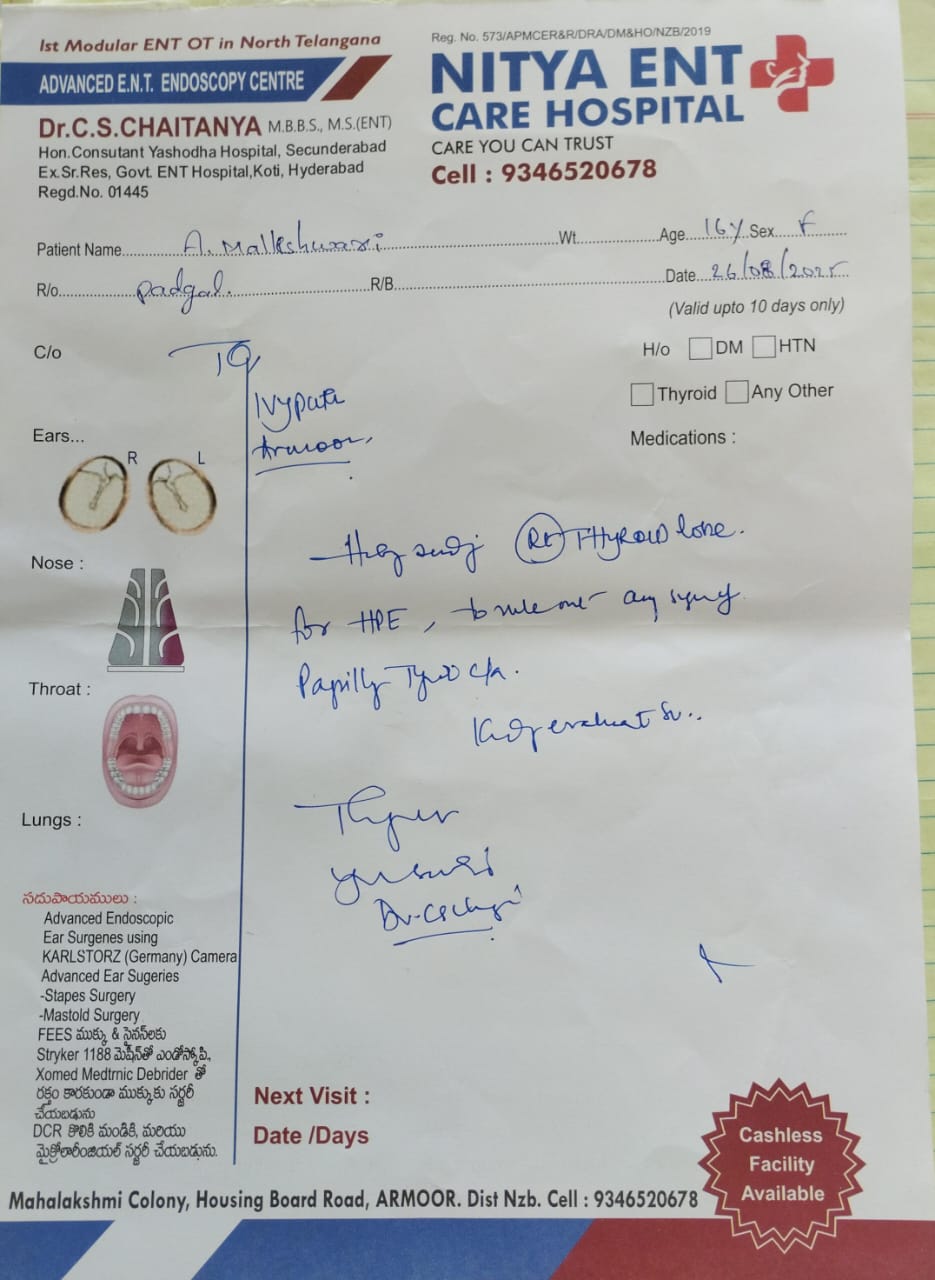 Ist Modular ENT OT in North Telangana
ADVANCED E.N.T. ENDOSCOPY CENTRE
Dr.C.S.CHAITANYA M.B.B.S., M.S.(ENT)
Hon.Consutant Yashodha Hospital, Secunderabad
Ex.Sr.Res, Govt. ENT Hospital,Koti, Hyderabad
Regd.No. 01445
Reg. No. 573/APMCER&R/DRA/DM&HO/NZB/2019
NITYA ENT
CARE HOSPITAL
CARE YOU CAN TRUST
Cell : 9346520678
Patient Name A. Malleshwari Wt. Age 16y Sex F
R/o padgal. R/B Date 26/08/2025
(Valid upto 10 days only)
C/o To
H/o DM HTN
Thyroid Any Other
Medications :
Armoor,
Ears...
R L
Rt THYROID lobe.
Nose :
for HPE, to rule out any
Throat :
Papilly c/a.
Lungs :
సదుపాయములు :
Advanced Endoscopic
Ear Surgenes using
KARLSTORZ (Germany) Camera
Advanced Ear Sugeries
-Stapes Surgery
-Mastold Surgery
FEES ముక్కు & సైనస్‌లకు
Stryker 1188 మెషీన్‌తో ఎండోస్కోపి,
Xomed Medtrnic Debrider తో
రక్తం కారకుండా ముక్కుకు సర్జరీ
చేయబడును
DCR కొలికి మండికి, మరియు
మైక్రోలారింజియల్ సర్జరీ చేయబడును.
Next Visit :
Date /Days
Cashless
Facility
Available
Mahalakshmi Colony, Housing Board Road, ARMOOR. Dist Nzb. Cell : 9346520678